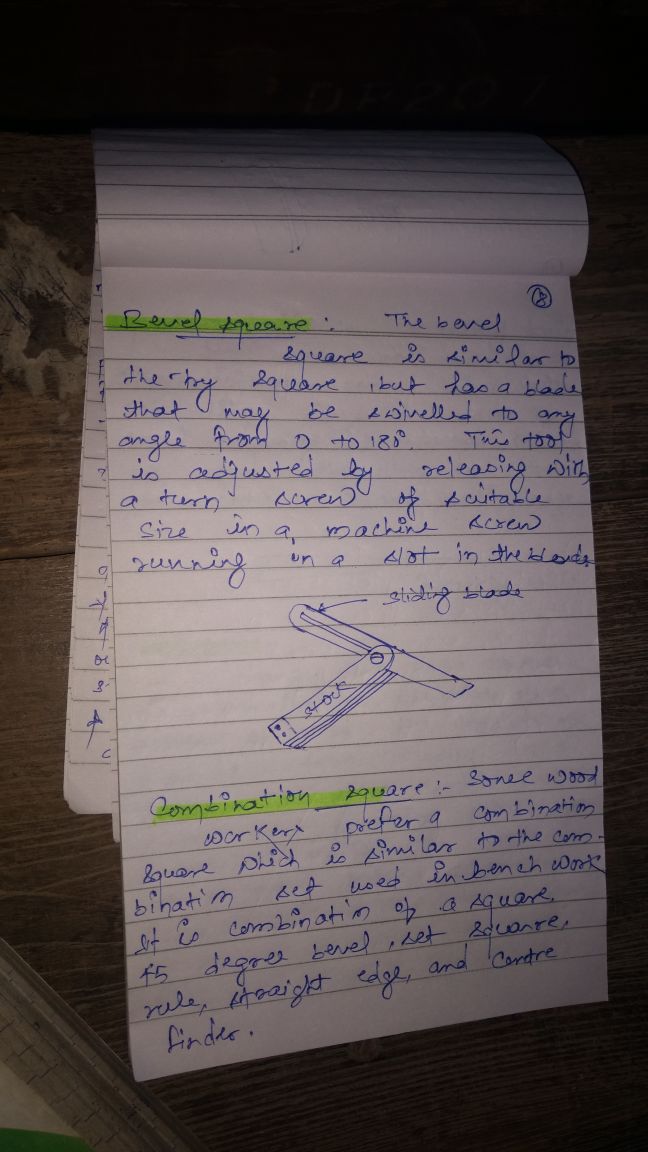 8
Bevel square : The bevel
square is similar to
the try square, but has a blade
that may be swivelled to any
angle from 0 to 180°. This tool
is adjusted by releasing with
a turn screw of suitable
size in a machine screw
running in a slot in the blade
sliding blade
stock
Combination square :- Some wood
workers prefer a combination
square which is similar to the com-
bination set used in bench work
It is combination of a square,
45 degree bevel, set square,
rule, straight edge, and centre
finder.